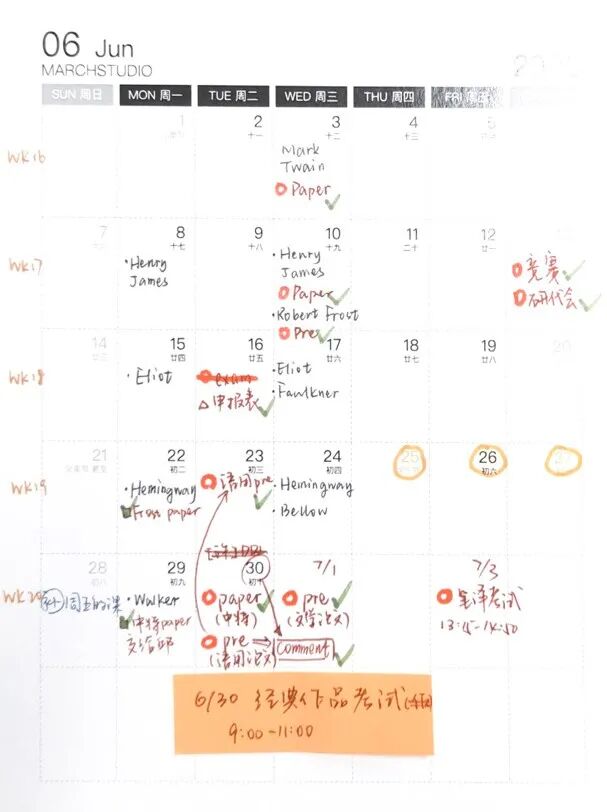 06 Jun
MARCHSTUDIO
SUN 周日 MON 周一 TUE 周二 WED 周三 THU 周四 FRI 周五
WK16
1
2 十一
3 十二
4 十三
5
Mark
Twain
Paper
WK17
7
8 十七
9 十八
10 十九
11 二十
12 廿一
Henry
James
Henry
James
Paper
Robert Frost
Pre
竞赛
研代会
WK18
14 廿三
15 廿四
16 廿五
17 廿六
18 廿七
19 廿八
20
Eliot
exam
申报表
Eliot
Faulkner
WK19
21
22 初二
23 初三
24 初四
25
26 初六
27
Hemingway
Frost paper
语用pre
Hemingway
Bellow
WK20
28 初八
29 初九
30 初十
7/1
7/3
补周五的课
Walker
中特paper
交给
paper
(中特)
pre
(语用论文)
pre
(文学论文)
comment
笔译考试
13:15-14:50
6/30 经典作品考试
9:00-11:00